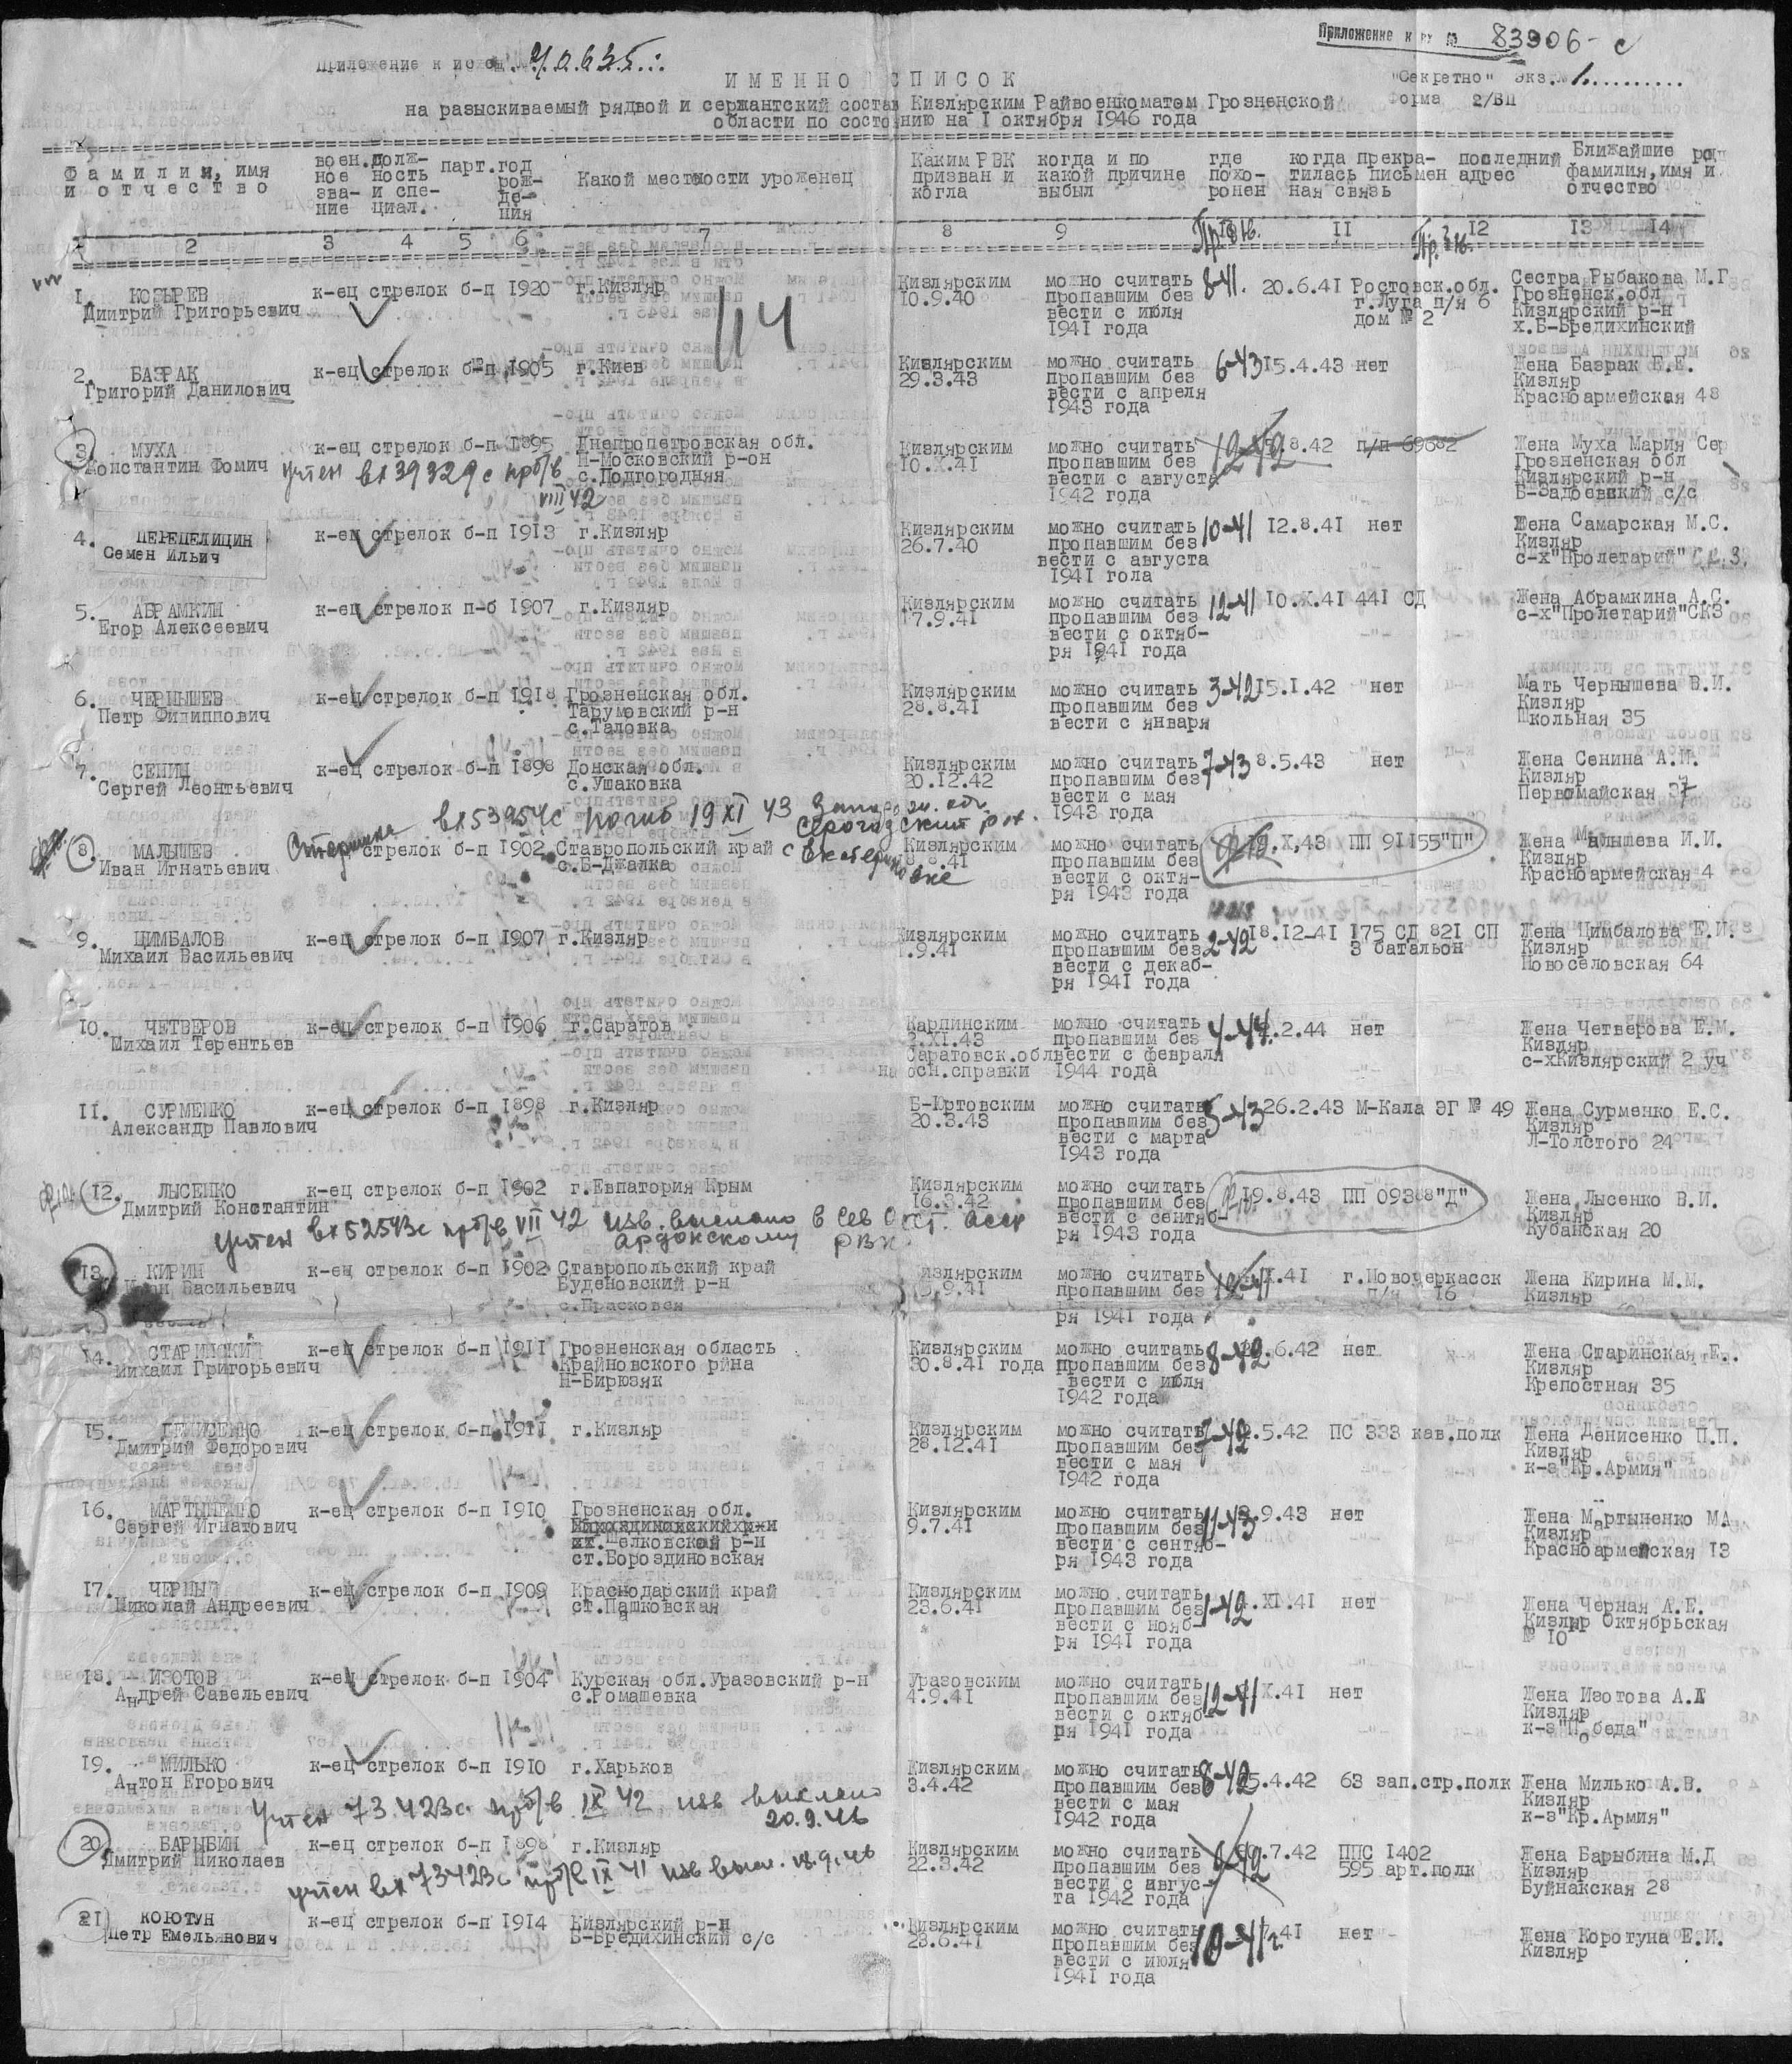 Приложение к вх № 83906-с
Приложение к исход. № 4.0.635.
"Секретно" Экз.№ 1..........
Форма 2/БП
ИМЕННО СПИСОК
на разыскиваемый рядвой и сержантский состав Кизлярским Райвоенкоматом Грозненской
области по состоянию на I октября 1946 года
Фамилии, имя и отчество
воен.ное зва-ние
долж-ность и спе-циал.
парт.
год рож-де-ния
Какой местности уроженец
Каким РВК призван и когла
когда и по какой причине выбыл
где похо-ронен
когда прекра-тилась письмен ная связь
последний адрес
Ближайшие род
фамилия, имя и отчество
2 3 4 5 6 7 8 9 II I2 I3 I4
114
I. КОЗЫРЕВ к-ец стрелок б-п I920 г.Кизляр Кизлярским можно считать 8-41. 20.6.41 Ростовск.обл. Сестра Рыбакова М.Г
Дмитрий Григорьевич I0.9.40 пропавшим без г.Луга п/я 6 Грозненск.обл
вести с июля дом № 2 Кизлярский р-н
I941 года х.Б-Бредихинский
2. БАЗРАК к-ец стрелок б-п I905 г.Киев Кизлярским можно считать 6-43 I5.4.43 нет Жена Базрак Е.Е.
Григорий Данилович 29.3.43 пропавшим без Кизляр
вести с апреля Красноармейская 48
I943 года
3. МУХА к-ец стрелок б-п I895 Днепропетровская обл. Кизлярским можно считать 12-42 8.42 п/п 69682 Жена Муха Мария Сер
Константин Фомич Н-Московский р-он I0.X.4I пропавшим без Грозненская обл
учтен вх 39329с пр б/в с.Подгородняя вести с августа Кизлярский р-н
VIII 42 I942 года Б-Задоевский с/с
4. ПЕРЕПЕЛИЦИН к-ец стрелок б-п I9I3 г.Кизляр Кизлярским можно считать 10-41 I2.8.4I нет Жена Самарская М.С.
Семен Ильич 26.7.40 пропавшим без Кизляр
вести с августа с-х"Пролетарий"
I94I гола
5. АБРАМКИН к-ец стрелок п-б I907 г.Кизляр Кизлярским можно считать 12-41 I0.X.4I 44I СД Жена Абрамкина А.С.
Егор Алексеевич I7.9.4I пропавшим без с-х"Пролетарий"СКЗ
вести с октяб-
ря I94I года
6. ЧЕРНЫШЕВ к-ец стрелок б-п I9I8 Грозненская обл. Кизлярским можно считать 3-42 I5.I.42 нет Мать Чернышева В.И.
Петр Филиппович Тарумовский р-н 28.8.4I пропавшим без Кизляр
с.Таловка вести с января Школьная 35
7. СЕНИН к-ец стрелок б-п I898 Донская обл. Кизлярским можно считать 7-43 8.5.43 нет Жена Сенина А.И.
Сергей Леонтьевич с.Ушаковка 20.I2.42 пропавшим без Кизляр
вести с мая Первомайская 37
I943 года
вх 53954с погиб 19 XI 43
8. МАЛЫШЕВ Старшина стрелок б-п I902 Ставропольский край Кизлярским можно считать .X,43 ПП 9II55"П" Жена Малышева И.И.
Иван Игнатьевич с.Б-Джалка 8.4I пропавшим без Кизляр
вести с октя- Красноармейская 4
ря I943 года
9. ЦИМБАЛОВ к-ец стрелок б-п I907 г.Кизляр Кизлярским можно считать 2-42 I8.I2-4I I75 СД 82I СП Жена Цимбалова Е.И.
Михаил Васильевич .9.4I пропавшим без 3 батальон Кизляр
вести с декаб- Новоселовская 64
ря I94I года
I0. ЧЕТВЕРОВ к-ец стрелок б-п I906 г.Саратов Карпинским можно считать 4-44 .2.44 нет Жена Четверова Е.М.
Михаил Терентьев .XI.43 пропавшим без Кизляр
Саратовск.обл вести с февраля с-хКизлярский 2 уч
на осн.справки I944 года
II. СУРМЕНКО к-ец стрелок б-п I898 г.Кизляр Б-Юртовским можно считать 5-43 26.2.43 М-Кала ЭГ № 49 Жена Сурменко Е.С.
Александр Павлович 20.3.43 пропавшим без Кизляр
вести с марта Л-Толстого 24
I943 года
I2. ЛЫСЕНКО к-ец стрелок б-п I902 г.Евпатория Крым Кизлярским можно считать I9.8.43 ПП 09388"Д" Жена Лысенко В.И.
Дмитрий Константин I6.3.42 пропавшим без Кизляр
вести с сентяб- Кубанская 20
ря I943 года
учтен вх 52543с пр б/в VII 42 изв. выслано в Сев Ост. АССР
Ардонскому РВК
I3. КИРИН к-ец стрелок б-п I902 Ставропольский край Кизлярским можно считать 12-41 X.4I г.Новочеркасск Жена Кирина М.М.
Васильевич Буденовский р-н .9.4I пропавшим без п/я I6 Кизляр
с.Прасковея
ря I94I года
I4. СТАРИНСКИЙ к-ец стрелок б-п I9II Грозненская область Кизлярским можно считать 8-42 .6.42 нет Жена Старинская Е.
Михаил Григорьевич Крайновского рйна 30.8.4I года пропавшим без Кизляр
Н-Бирюзяк вести с июля Крепостная 35
I942 года
I5. ДЕНИСЕНКО к-ец стрелок б-п I9II г.Кизляр Кизлярским можно считать 7-42 .5.42 ПС 333 кав.полк Жена Денисенко П.П.
Дмитрий Федорович 28.I2.4I пропавшим без Кизляр
вести с мая к-з"Кр.Армия"
I942 года
I6. МАРТЫНЕНКО к-ец стрелок б-п I9I0 Грозненская обл. Кизлярским можно считать 11-43 .9.43 нет Жена Мартыненко МА
Сергей Игнатович 9.7.4I пропавшим без Кизляр
ст.Шелковской р-н вести с сентяб- Красноармейская I3
ст.Бороздиновская ря I943 года
I7. ЧЕРНЫЙ к-ец стрелок б-п I909 Краснодарский край Кизлярским можно считать 1-42 .XI.4I нет Жена Черная А.Е.
Николай Андреевич ст.Пашковская 23.6.4I пропавшим без Кизляр Октябрьская
вести с нояб- № I0
ря I94I года
I8. ИЗОТОВ к-ец стрелок б-п I904 Курская обл.Уразовский р-н Уразовским можно считать 12-41 X.4I нет Жена Изотова А.
Андрей Савельевич с.Ромашевка 4.9.4I пропавшим без Кизляр
вести с октяб- к-з"Победа"
ря I94I года
I9. МИЛЬКО к-ец стрелок б-п I9I0 г.Харьков Кизлярским можно считать 8-42 5.4.42 63 зап.стр.полк Жена Милько А.В.
Антон Егорович 3.4.42 пропавшим без Кизляр
вести с мая к-з"Кр.Армия"
I942 года
учтен 73423с пр б/в IX 42 изв выслано
20.9.46
20. БАРЫБИН к-ец стрелок б-п I898 г.Кизляр Кизлярским можно считать .7.42 ППС I402 Жена Барыбина М.Д
Дмитрий Николаев 22.3.42 пропавшим без 595 арт.полк Кизляр
вести с авгус- Буйнакская 28
та I942 года
учтен вх 73423с пр б/в IX 41 изв высл. 18.9.46
2I КОЮТУН к-ец стрелок б-п I9I4 Кизлярский р-н Кизлярским можно считать 10-41г. 4I нет Жена Коротуна Е.И.
Петр Емельянович Б-Бредихинский с/с 23.6.4I пропавшим без Кизляр
вести с июля
I94I года